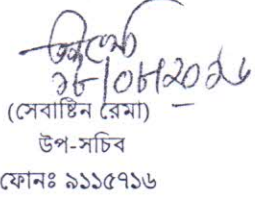 ১৮/০৮/২০১৬
(সেবাষ্টিন রেমা)
উপ-সচিব
ফোনঃ ৯১১৫৭১৬